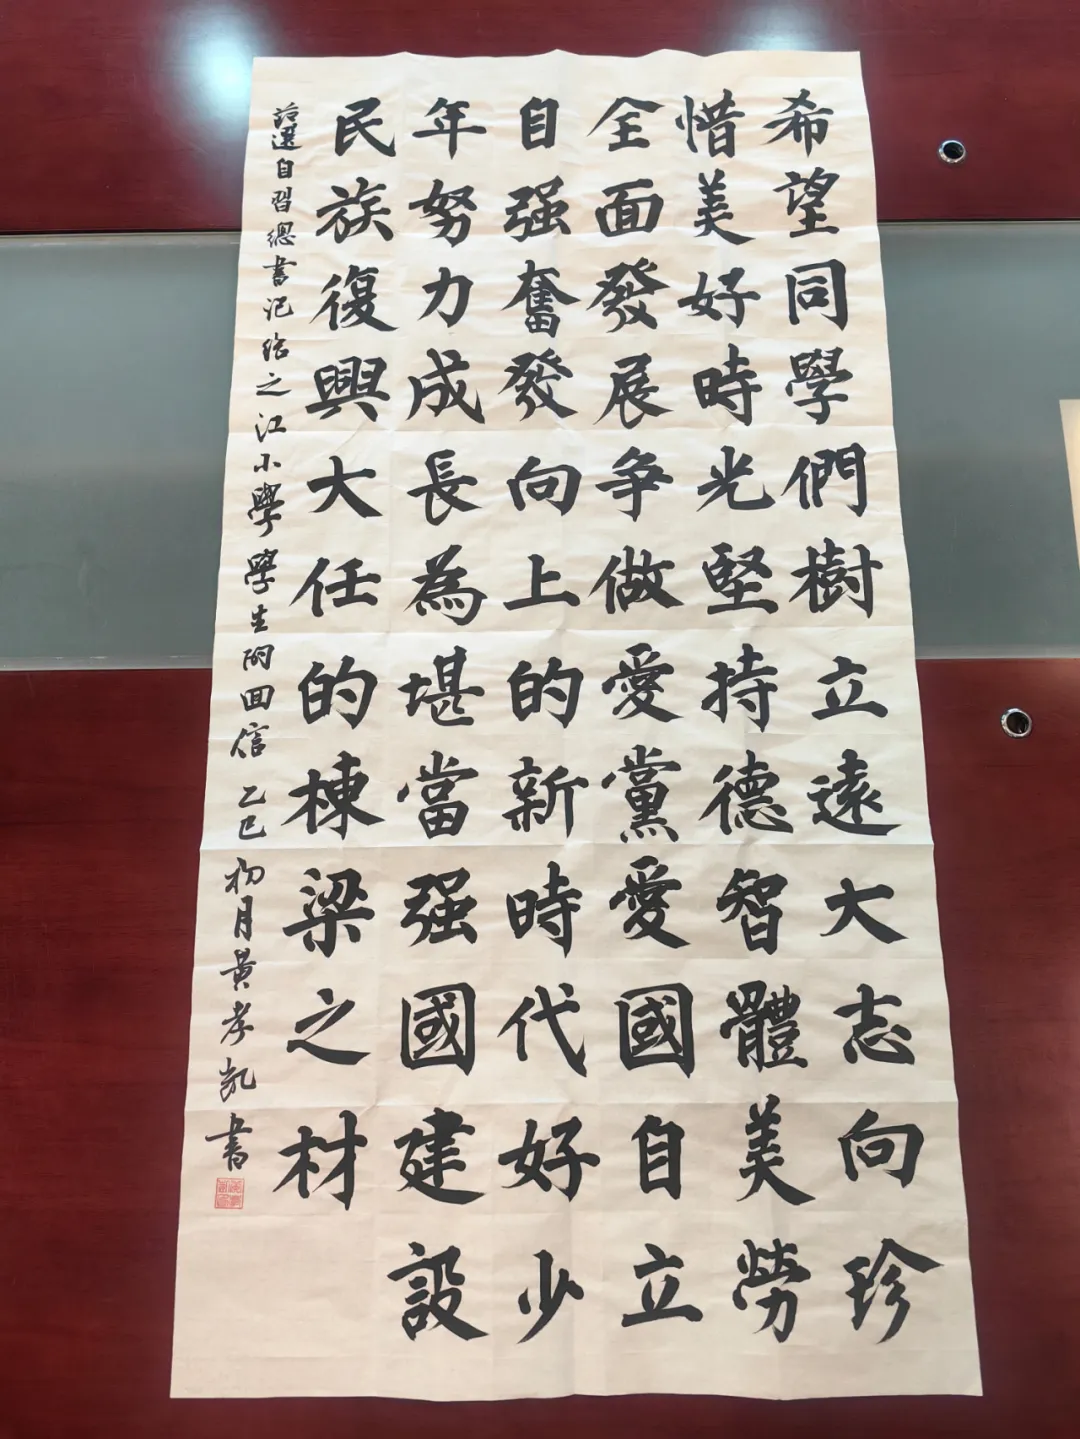 希望同學們樹立遠大志向珍
惜美好時光堅持德智體美勞
全面發展争做愛黨愛國自立
自强奮發向上的新時代好少
年努力成長為堪當强國建設
民族復興大任的棟梁之材
節選自習總書記給之江小學學生的回信 乙巳初月黄孝凯書